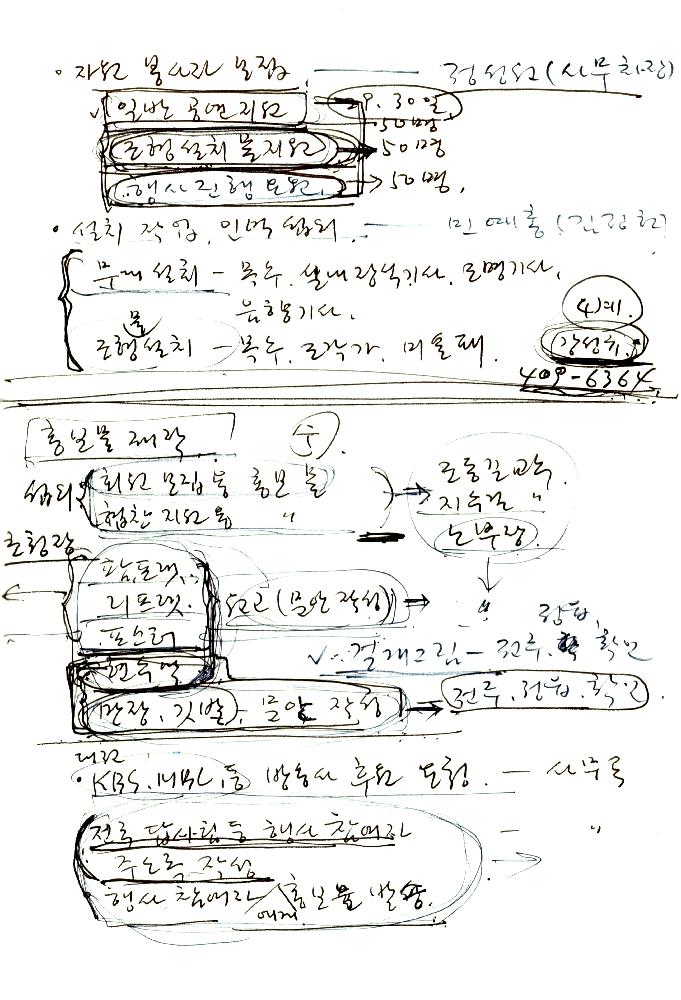 · 자원 봉사자 모집 —— 정성원 (사무차장)
√ 일반 공연지원 → 9. 30일
50명
조형설치물지원 → 50명
행사진행요원 → 50명.
· 설치 작업, 인력 섭외 — 민예총 (김정헌)
무대설치 - 목수. 실내장식기사. 조명기사.
음향기사.
조형물설치 - 목수. 조각가. 미술패.
409-6364
홍보물 제작
섭외 회원 모집 등 홍보물
협찬 지원 등 〃
→ 조동길 교수.
지수걸 〃
초청장
팜프렛.
리프렛.
포스터
현수막
원고 (문안 작성) →
√. 걸개그림 - 전주. 확인
만장. 깃발. 문안 작성 →
· KBS. MBC 등 방송사 후원 요청. — 사무국
전국 답사팀 등 행사 참여자 - 〃
주소록 작성
행사 참여자에게 홍보물 발송.